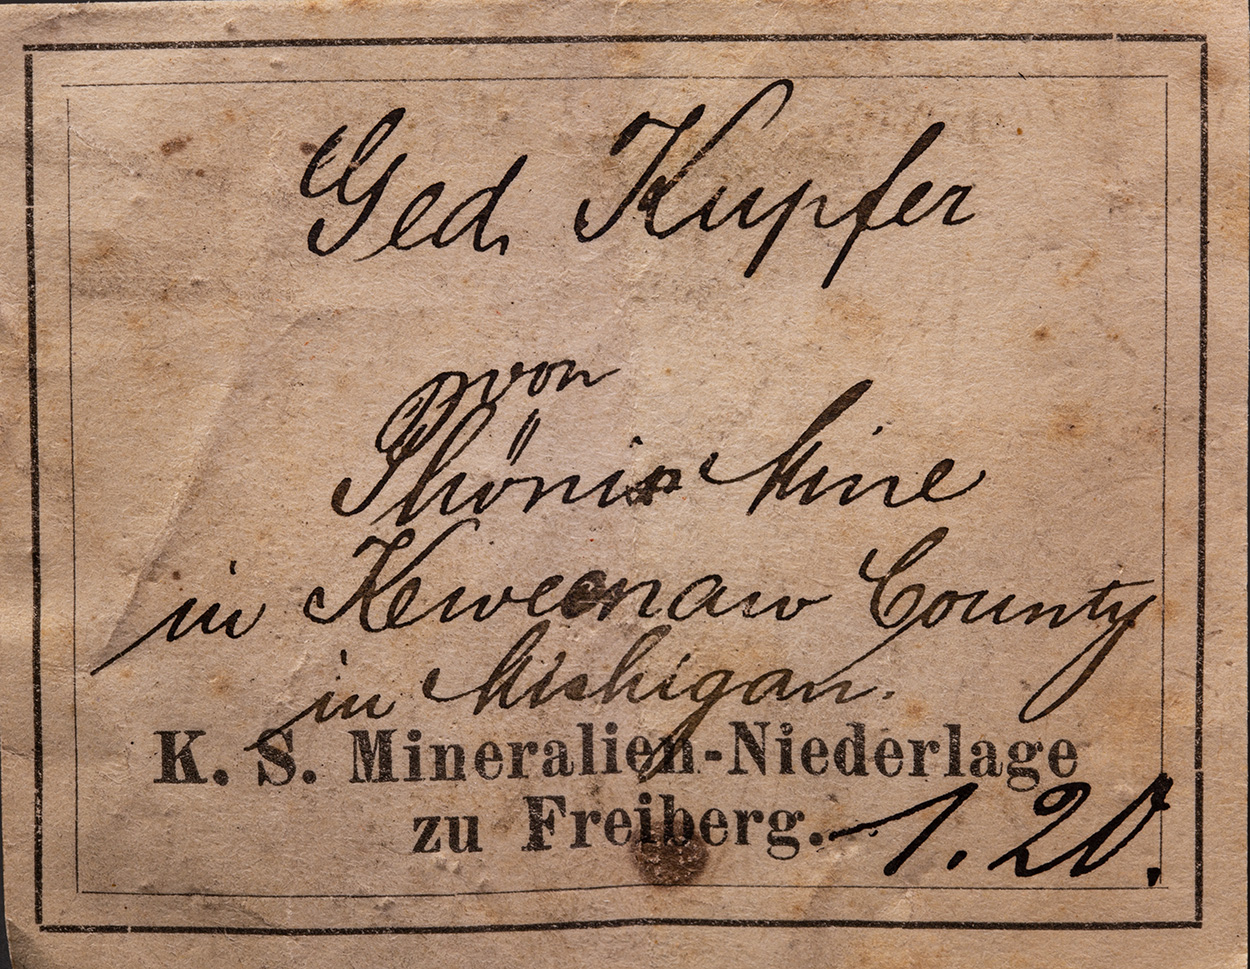 Ged. Kupfer
von
Phönix Mine
in Keweenaw County
in Mishigan.
K. S. Mineralien-Niederlage
zu Freiberg.
1.20.